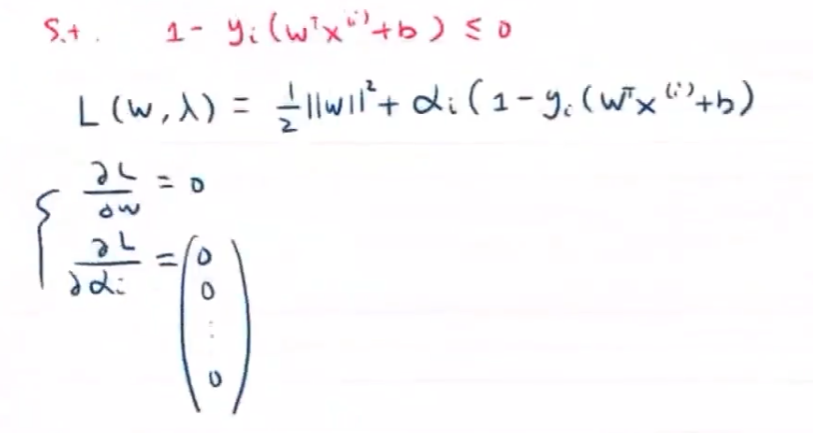 S.t. 1 - yᵢ(wᵀx⁽ⁱ⁾+b) ≤ 0
L(w, λ) = 1/2 ||w||² + αᵢ(1 - yᵢ(wᵀx⁽ⁱ⁾+b)
{ ∂L/∂w = 0
∂L/∂αᵢ = (0
0
⋮
0)